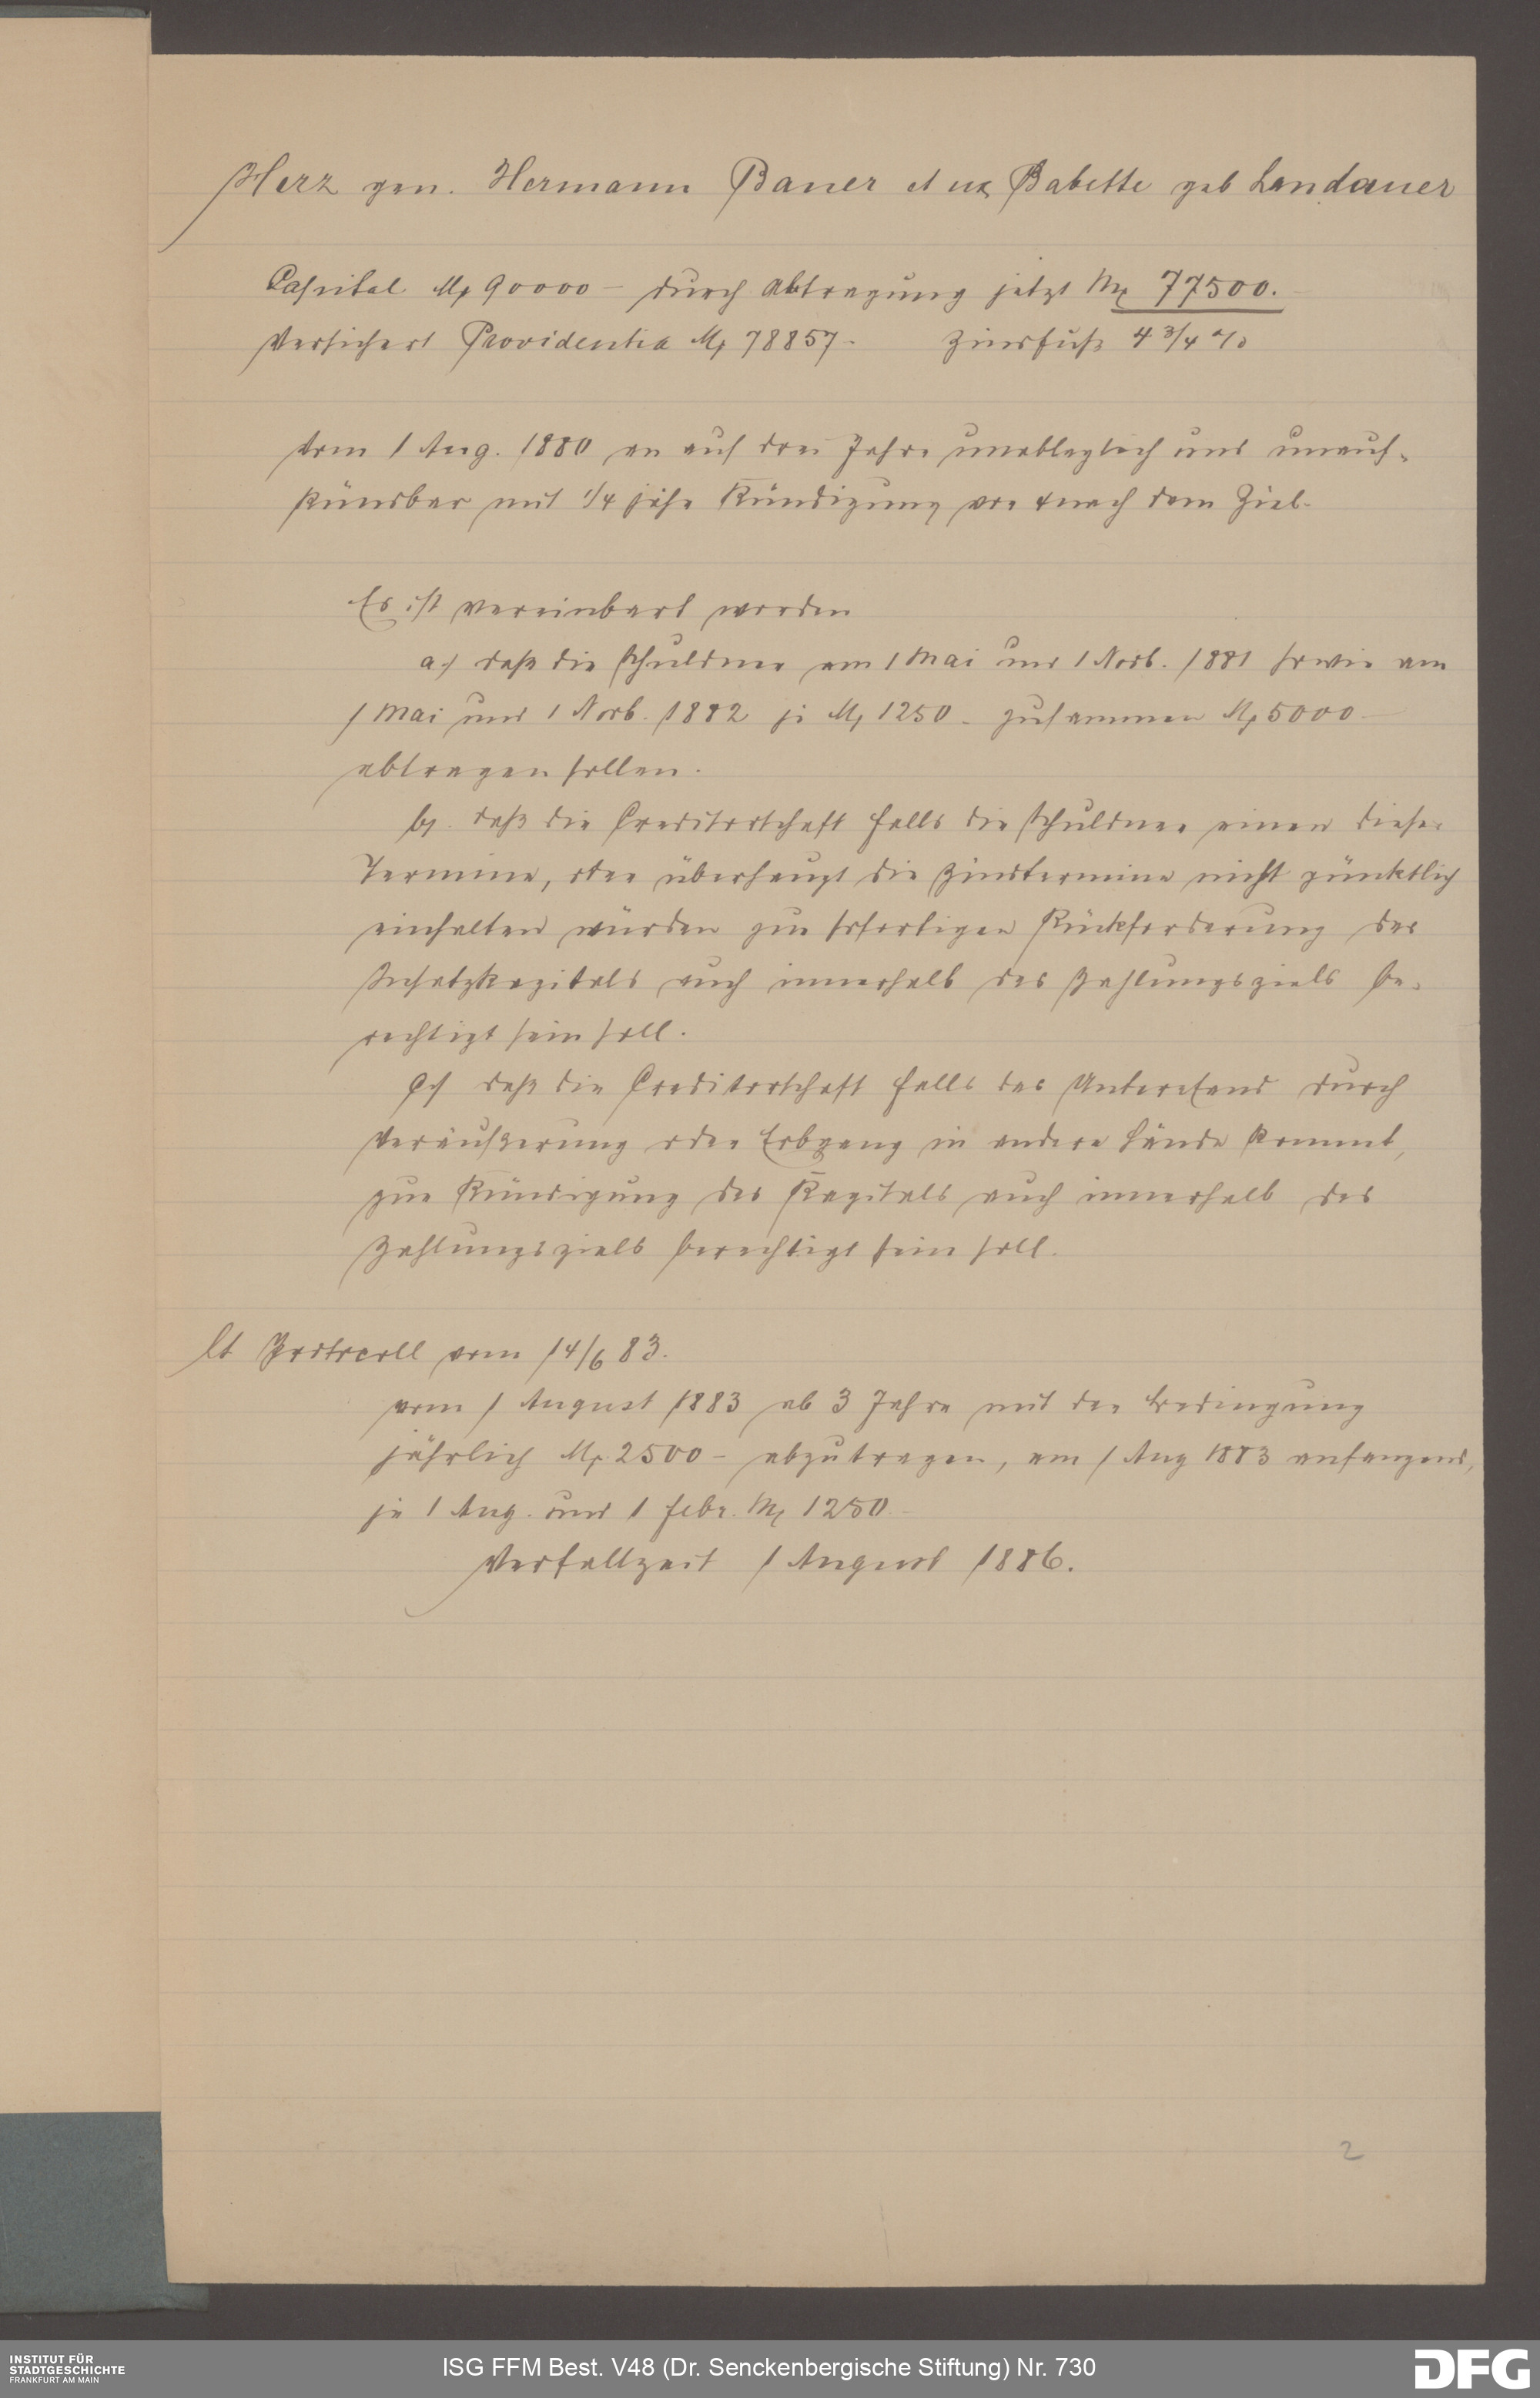 Herz gen. Hermann Bauer et ux Babette geb Landauer
Capital M 90000 – durch Abtragung jetzt M 77500.
Versichert Providentia M 78857. Zinsfuß 4 3/4 %
vom 1 Aug. 1880 an auf drei Jahre unableglich und unauf-
kündbar mit 1/4 jähr Kündigung vor & nach dem Ziel.
Es ist vereinbart worden
a.) daß die Schuldner am 1 Mai und 1 Novb. 1881 sowie am
1 Mai und 1 Novb. 1882 je M 1250 – zusammen M 5000 –
abtragen sollen.
b). daß die Creditorschaft falls die Schuldner einen dieser
Termine, oder überhaupt die Zinstermine nicht pünktlich
einhalten würden zur sofortigen Rückforderung des
Insatzkapitals auch innerhalb des Zahlungsziels be-
rechtigt sein soll.
c) daß die Creditorschaft falls das Unterpfand durch
Veräußerung oder Erbgang in andere Hände kommt,
zur Kündigung des Kapitals auch innerhalb des
Zahlungsziels berechtigt sein soll.
lt Protocoll vom 14/6 83.
vom 1 August 1883 ab 3 Jahre mit der Bedingung
jährlich M 2500 – abzutragen, am 1 Aug 1883 anfangend,
je 1 Aug. und 1 Febr. M 1250 –
Verfallzeit 1 August 1886.
2
INSTITUT FÜR
STADTGESCHICHTE
FRANKFURT AM MAIN
ISG FFM Best. V48 (Dr. Senckenbergische Stiftung) Nr. 730
DFG